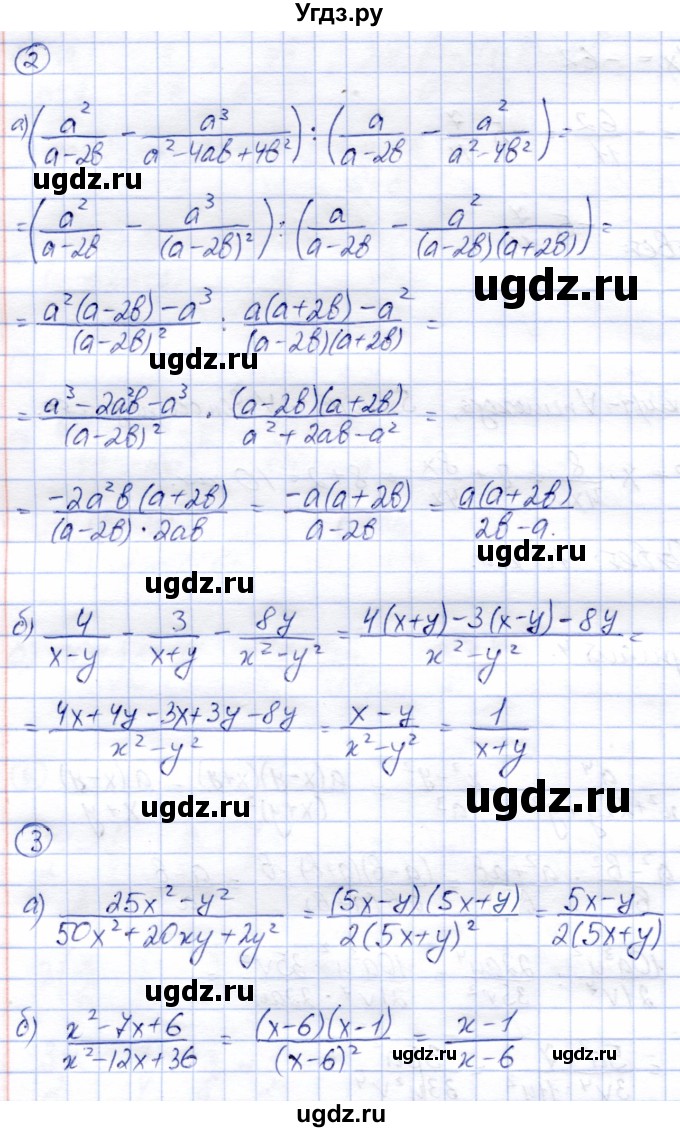 Угдз.ру
2
а) (a²/(a-2b) - a³/(a²-4ab+4b²)) : (a/(a-2b) - a²/(a²-4b²)) =
ugdz.ru
= (a²/(a-2b) - a³/(a-2b)²) : (a/(a-2b) - a²/((a-2b)(a+2b))) =
ugdz.ru
= (a²(a-2b)-a³)/(a-2b)² : (a(a+2b)-a²)/((a-2b)(a+2b)) =
ugdz.ru
= (a³-2a²b-a³)/(a-2b)² · ((a-2b)(a+2b))/(a²+2ab-a²) =
= (-2a²b(a+2b))/((a-2b)·2ab) = (-a(a+2b))/(a-2b) = (a(a+2b))/(2b-a).
ugdz.ru
ugdz.ru
б) 4/(x-y) - 3/(x+y) - 8y/(x²-y²) = (4(x+y)-3(x-y)-8y)/(x²-y²) =
= (4x+4y-3x+3y-8y)/(x²-y²) = (x-y)/(x²-y²) = 1/(x+y)
ugdz.ru
ugdz.ru
3
а) (25x²-y²)/(50x²+20xy+2y²) = ((5x-y)(5x+y))/(2(5x+y)²) = (5x-y)/(2(5x+y))
ugdz.ru
б) (x²-7x+6)/(x²-12x+36) = ((x-6)(x-1))/(x-6)² = (x-1)/(x-6)
ugdz.ru
ugdz.ru
ugdz.ru